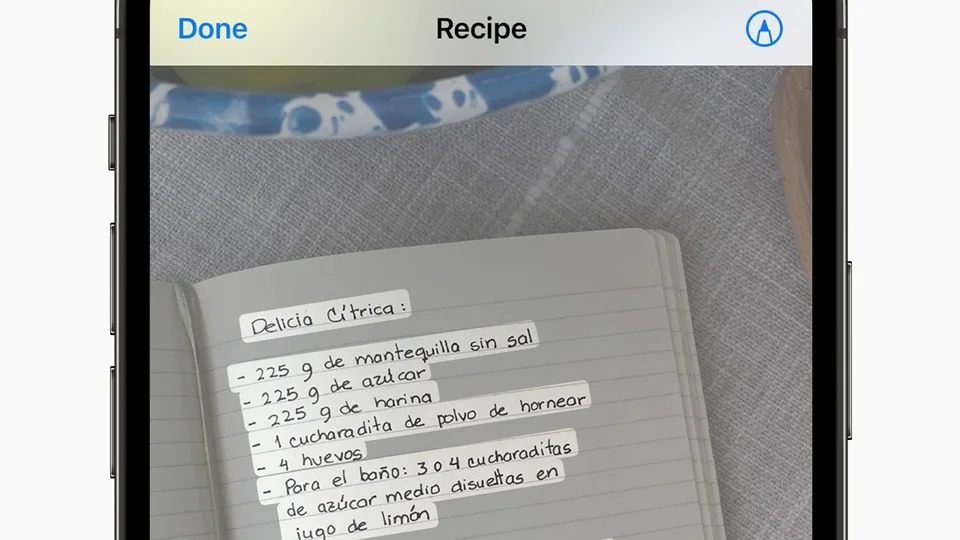 Done
Recipe
Delicia Cítrica:
- 225 g de mantequilla sin sal
- 225 g de azúcar
- 225 g de harina
- 1 cucharadita de polvo de hornear
- 4 huevos
- Para el baño: 3 o 4 cucharaditas
de azúcar medio disueltas en
jugo de limón